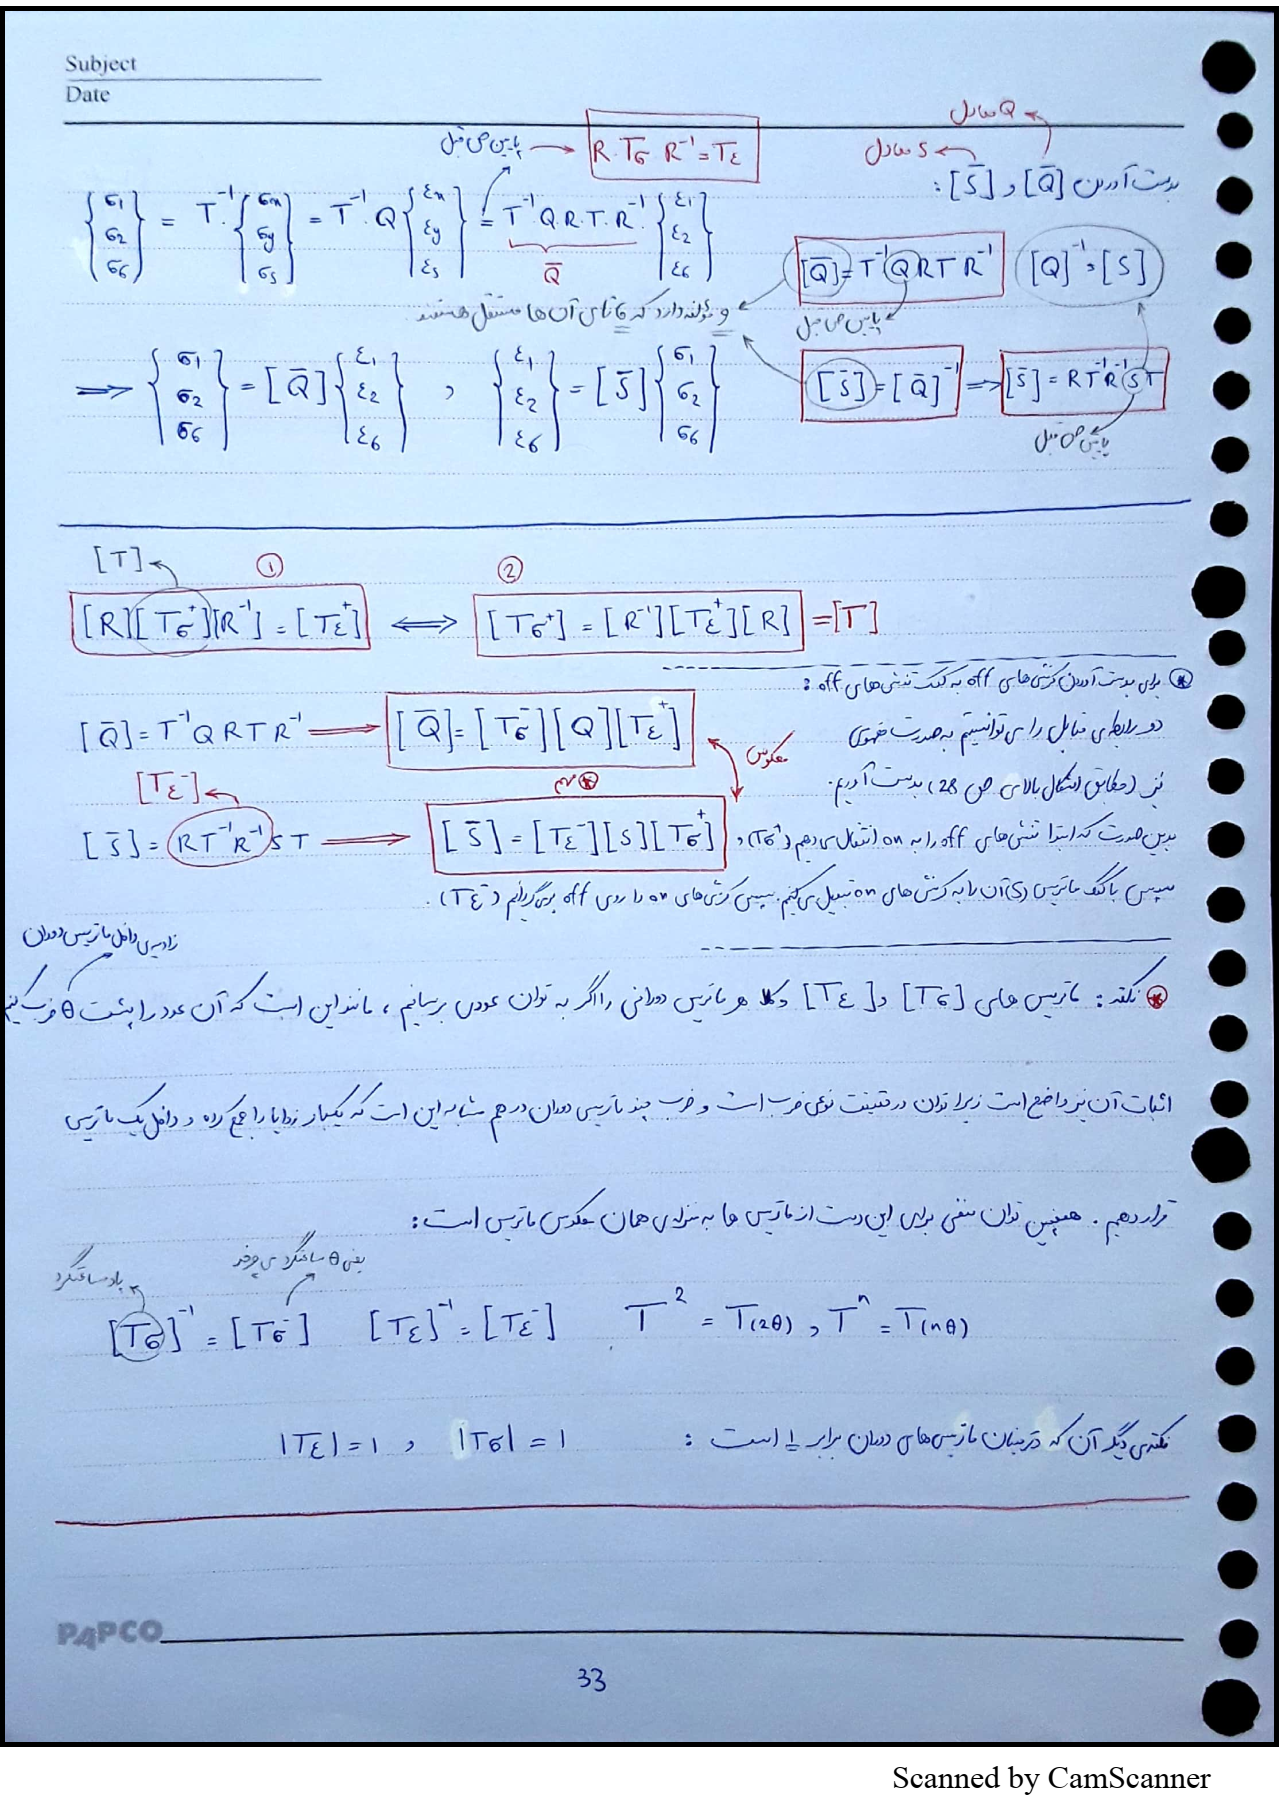 Subject
Date
Q معادل
S معادل
پایین ص قبل → R.Tσ R⁻¹ = Tε
بدست آوردن [Q̄] و [S̄] :
{σ1 σ2 σ6} = T⁻¹.{σx σy σs} = T⁻¹.Q{εx εy εs} = T⁻¹.Q.R.T.R⁻¹.{ε1 ε2 ε6}
Q̄
[Q̄] = T⁻¹QRTR⁻¹
[Q]⁻¹ = [S]
پایین ص قبل
و مؤلفه دارد که 6 تای آن ها مستقل هستند
⟹ {σ1 σ2 σ6} = [Q̄]{ε1 ε2 ε6} , {ε1 ε2 ε6} = [S̄]{σ1 σ2 σ6}
[S̄] = [Q̄]⁻¹ ⟹ [S̄] = RT⁻¹R⁻¹ST
پایین ص قبل
[T] ① ②
[R][Tσ⁺][R⁻¹] = [Tε⁺] ⟺ [Tσ⁺] = [R⁻¹][Tε⁺][R] = [T]
برای بدست آوردن کرنش های off به کمک تنش های off :
[Q̄] = T⁻¹QRTR⁻¹ ⟹ [Q̄] = [Tσ⁻][Q][Tε⁺]
دو رابطه ی مقابل را می توانستیم به صورت مفهومی
معکوس
[Tε⁻]
نیز (مطابق اشکال بالای ص 28) بدست آوریم.
مهم
[S̄] = RT⁻¹R⁻¹ST ⟹ [S̄] = [Tε⁻][S][Tσ⁺]
بدین صورت که ابتدا تنش های off را به on انتقال می دهیم (Tσ⁺)،
سپس با کمک ماتریس (S) آن را به کرنش های on تبدیل می کنیم. سپس کرنش های on را روی off برمی گردانیم (Tε⁻).
زاویه ی داخل ماتریس دوران
نکته : ماتریس های [Tσ] و [Tε] و کلا هر ماتریس دورانی را اگر به توان عددی برسانیم ، مانند این است که آن عدد را پشت θ ضرب کنیم
اثبات آن نیز واضح است زیرا توان در حقیقت نوعی ضرب است و ضرب چند ماتریس دوران در هم مشابه این است که یکبار زوایا را جمع کرده و داخل یک ماتریس
قرار دهیم . همچنین توان منفی برای این دست از ماتریس ها به منزله ی همان معکوس ماتریس است :
یعنی θ ساعتگرد می چرخد
پادساعتگرد
[Tσ]⁻¹ = [Tσ⁻] [Tε]⁻¹ = [Tε⁻] T² = T(2θ) , Tⁿ = T(nθ)
نکته ی دیگر آن که دترمینان ماتریس های دوران برابر 1 است : |Tσ| = 1 , |Tε| = 1
PAPCO
33
Scanned by CamScanner